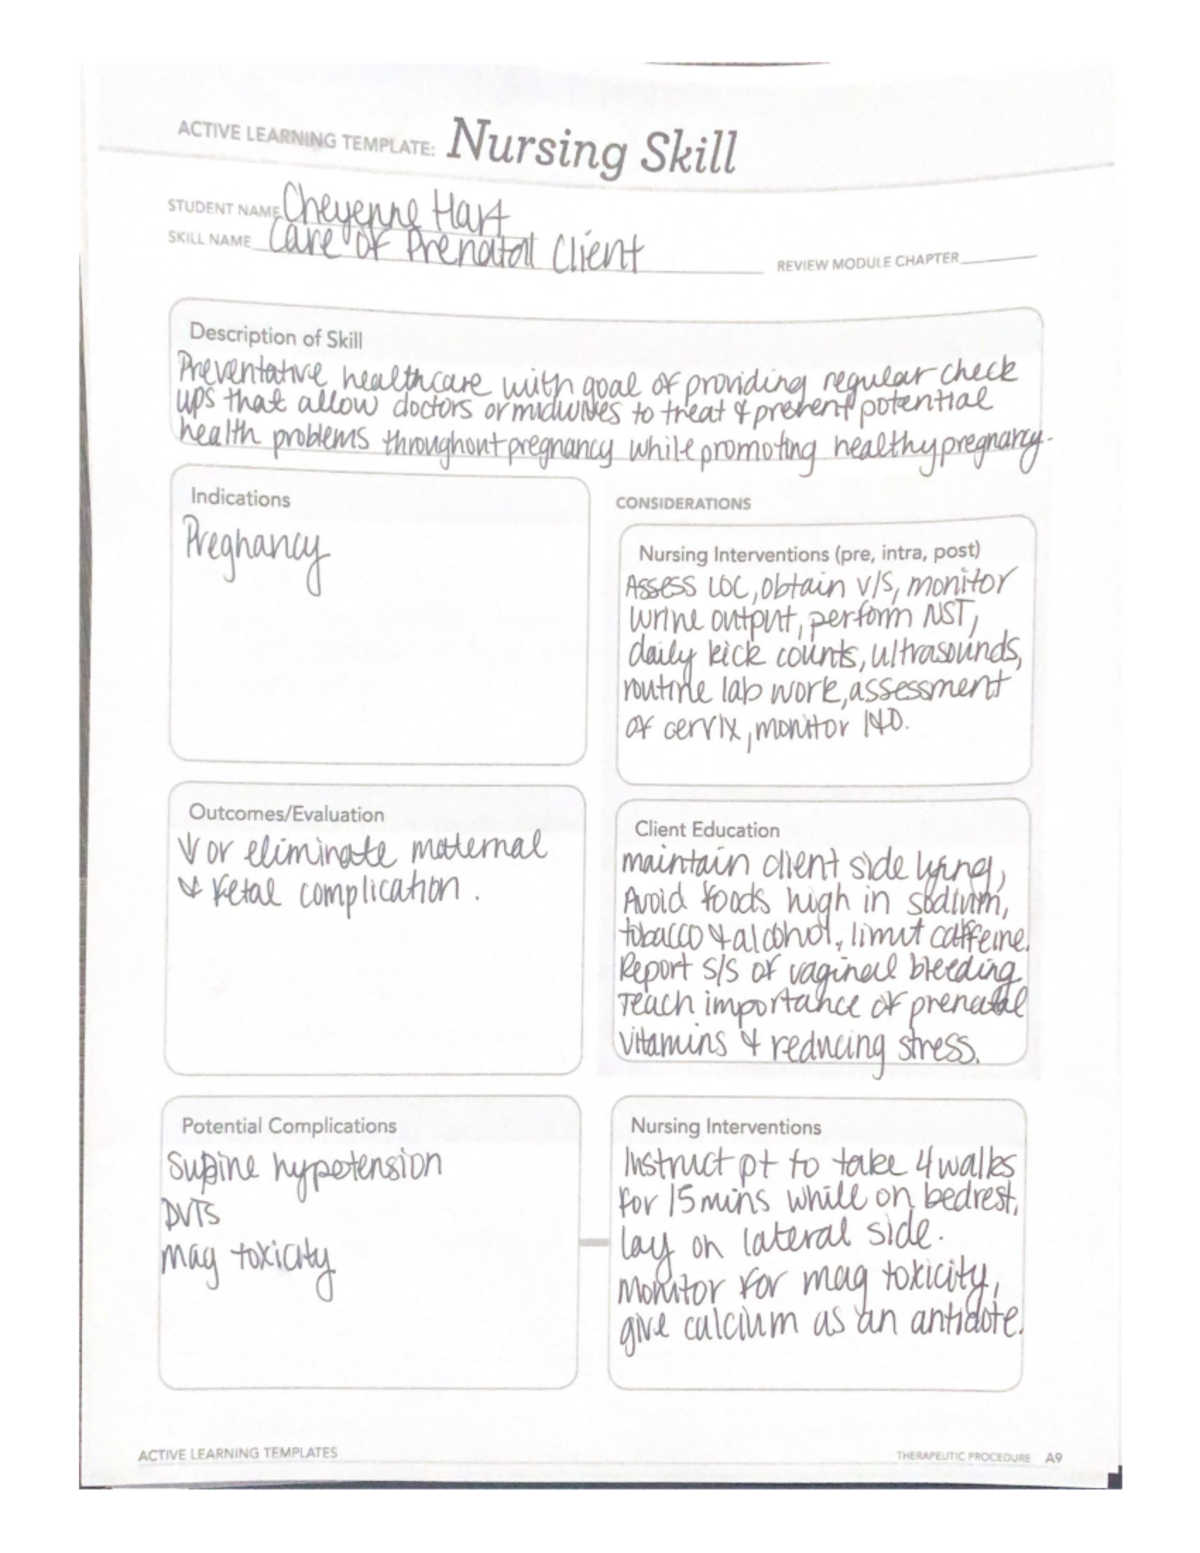 ACTIVE LEARNING TEMPLATE: Nursing Skill
STUDENT NAME Cheyenne Hart
SKILL NAME Care of Prenatal Client
REVIEW MODULE CHAPTER
Description of Skill
Preventative healthcare with goal of providing regular check
ups that allow doctors or midwives to treat & prevent potential
health problems throughout pregnancy while promoting healthy pregnancy.
Indications
Pregnancy
CONSIDERATIONS
Nursing Interventions (pre, intra, post)
Assess LOC, obtain v/s, monitor
urine output, perform NST,
daily kick counts, ultrasounds,
routine lab work, assessment
of cervix, monitor I&O.
Outcomes/Evaluation
↓ or eliminate maternal
& fetal complication.
Client Education
maintain client side lying,
Avoid foods high in sodium,
tobacco & alcohol, limit caffeine.
Report s/s of vaginal bleeding
Teach importance of prenatal
vitamins & reducing stress.
Potential Complications
Supine hypotension
DVTs
mag toxicity
Nursing Interventions
Instruct pt to take 4 walks
for 15 mins while on bedrest,
lay on lateral side.
Monitor for mag toxicity,
give calcium as an antidote.
ACTIVE LEARNING TEMPLATES
THERAPEUTIC PROCEDURE A9